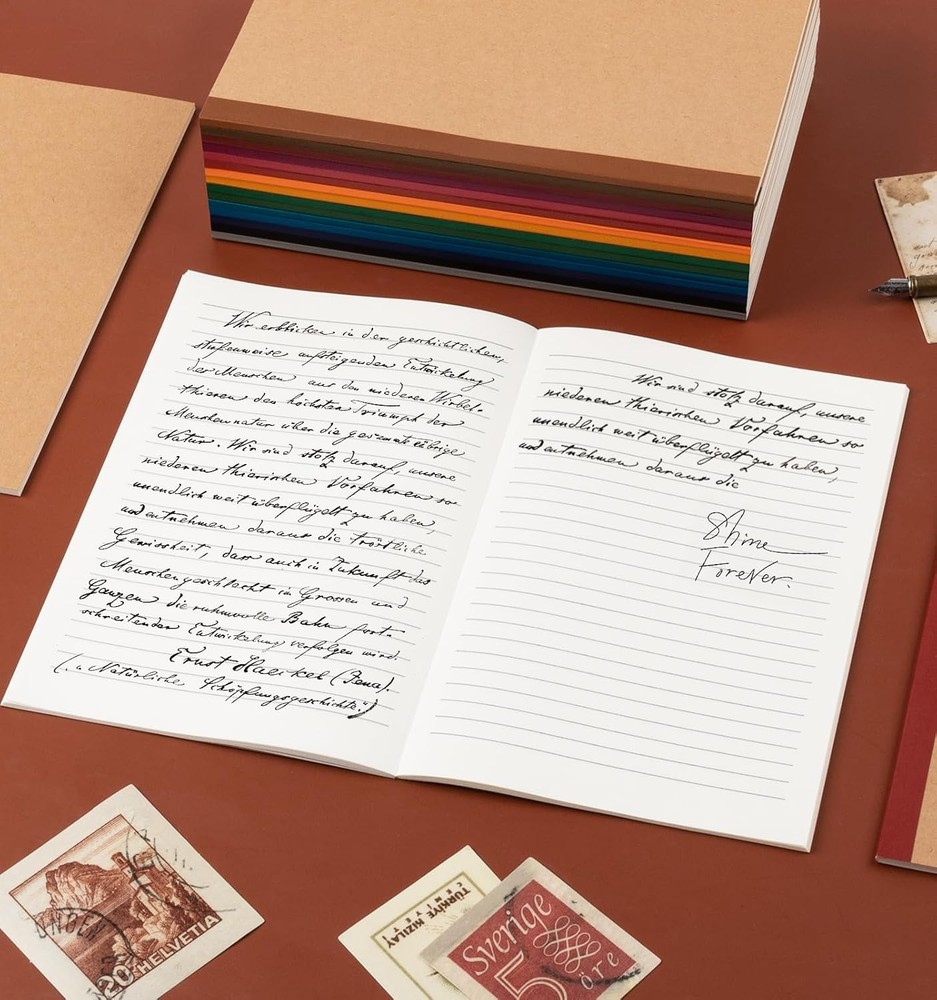 Wir erblicken in der geschichtlichen,
stufenweise aufsteigenden Entwickelung
der Menschen aus den niederen Wirbel-
thieren den höchsten Triumph der
Menschennatur über die gesammte übrige
Natur. Wir sind stolz darauf, unsere
niederen thierischen Vorfahren so
unendlich weit überflügelt zu haben,
und entnehmen daraus die tröstliche
Gewissheit, dass auch in Zukunft das
Menschengeschlecht im Grossen und
Ganzen die ruhmvolle Bahn fort-
schreitender Entwickelung verfolgen wird.
Ernst Haeckel (Jena).
Natürliche Schöpfungsgeschichte.")
Wir sind stolz darauf, unsere
niederen thierischen Vorfahren so
unendlich weit überflügelt zu haben,
und entnehmen daraus die
Shine
ForeVer.
20 HELVETIA
TÜRKİYE KIZILAY
CEMİYETİ
Sverige
5
öre